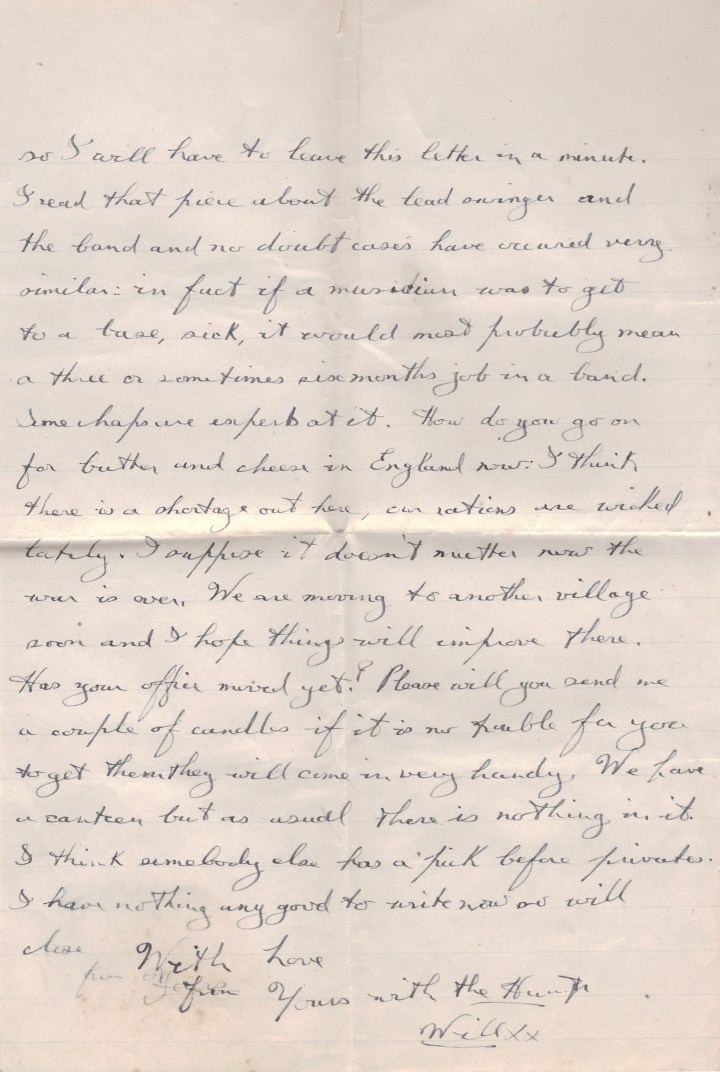 so I will have to leave this letter in a minute.
I read that piece about the lead swinger and
the band and no doubt cases have occured very
similar: in fact if a musician was to get
to a base, sick, it would most probably mean
a three or sometimes six months job in a band.
Some chaps are experts at it. How do you go on
for butter and cheese in England now: I think
there is a shortage out here, our rations are wicked
lately. I suppose it doesn't matter now the
war is over. We are moving to another village
soon and I hope things will improve there.
Has your office moved yet? Please will you send me
a couple of candles if it is no trouble for you
to get them they will come in very handy. We have
a canteen but as usual there is nothing in it.
I think somebody else has a pick before privates.
I have nothing any good to write now so will
close
With Love
from
from Yours with the Hump
Will xx